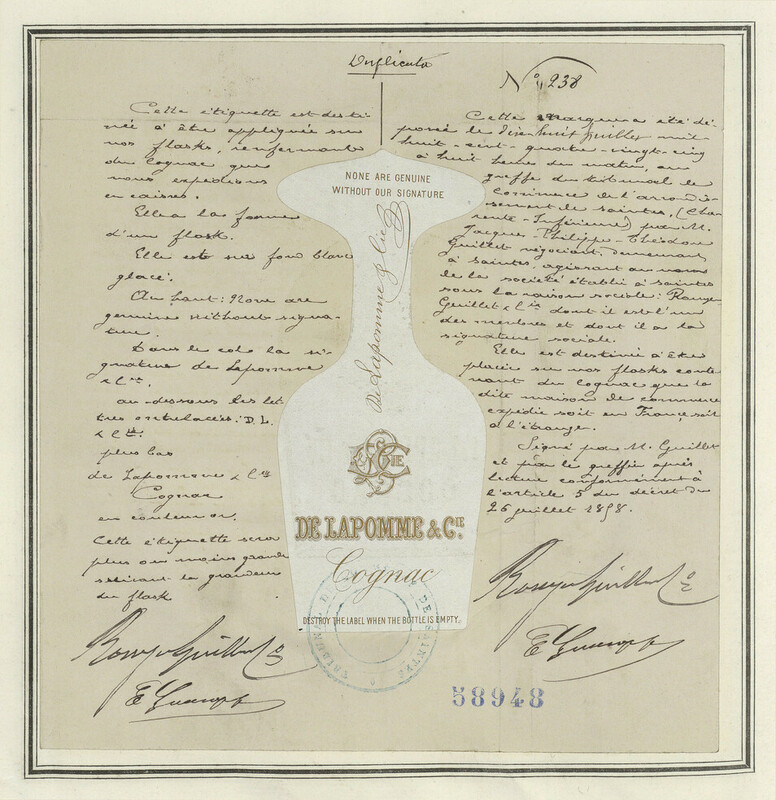 Duplicata
No. 238
Cette étiquette est desti-
née à être appliquée sur
nos flasks, renfermant
du Cognac que
nous expédions
en caisses.
Elle a la forme
d'un flask.
Elle est sur fond blanc
glacé.
Au haut: None are
genuine without signa-
ture.
Dans le col la si-
gnature de Lapomme
& Cie.
au-dessous les let-
tres entrelacées: D. L.
& Cie.
plus bas
de Lapomme & Cie
Cognac
en couleur or.
Cette étiquette sera
plus ou moins grande
suivant la grandeur
du flask
NONE ARE GENUINE
WITHOUT OUR SIGNATURE
De Lapomme & Cie
DE LAPOMME & CIE.
Cognac
DESTROY THE LABEL WHEN THE BOTTLE IS EMPTY.
TRIBUNAL DE SAINTES
Cette marque a été dé-
posée le dixhuit juillet mil-
huit-cent-quatre-vingt-cinq
à huit heures du matin, au
greffe du tribunal de
Commerce de l'arrondis-
sement de Saintes, (Cha-
rente-Inférieure) par M.
Jacques-Philippe-Théodore
Guillet négociant, demeurant
à Saintes, agissant au nom
de la société établie à Saintes
sous la raison sociale: Rouyer
Guillet & Cie dont il est l'un
des membres et dont il a la
signature sociale.
Elle est destinée à être
placée sur nos flasks conte-
nant du Cognac que la
dite maison de commerce
expédie soit en France soit
à l'étranger.
Signé par M. Guillet
et par le greffier après
lecture conformément à
l'article 5 du décret du
26 juillet 1858.
Rouyer Guillet & Cie
Rouyer Guillet & Cie
58948